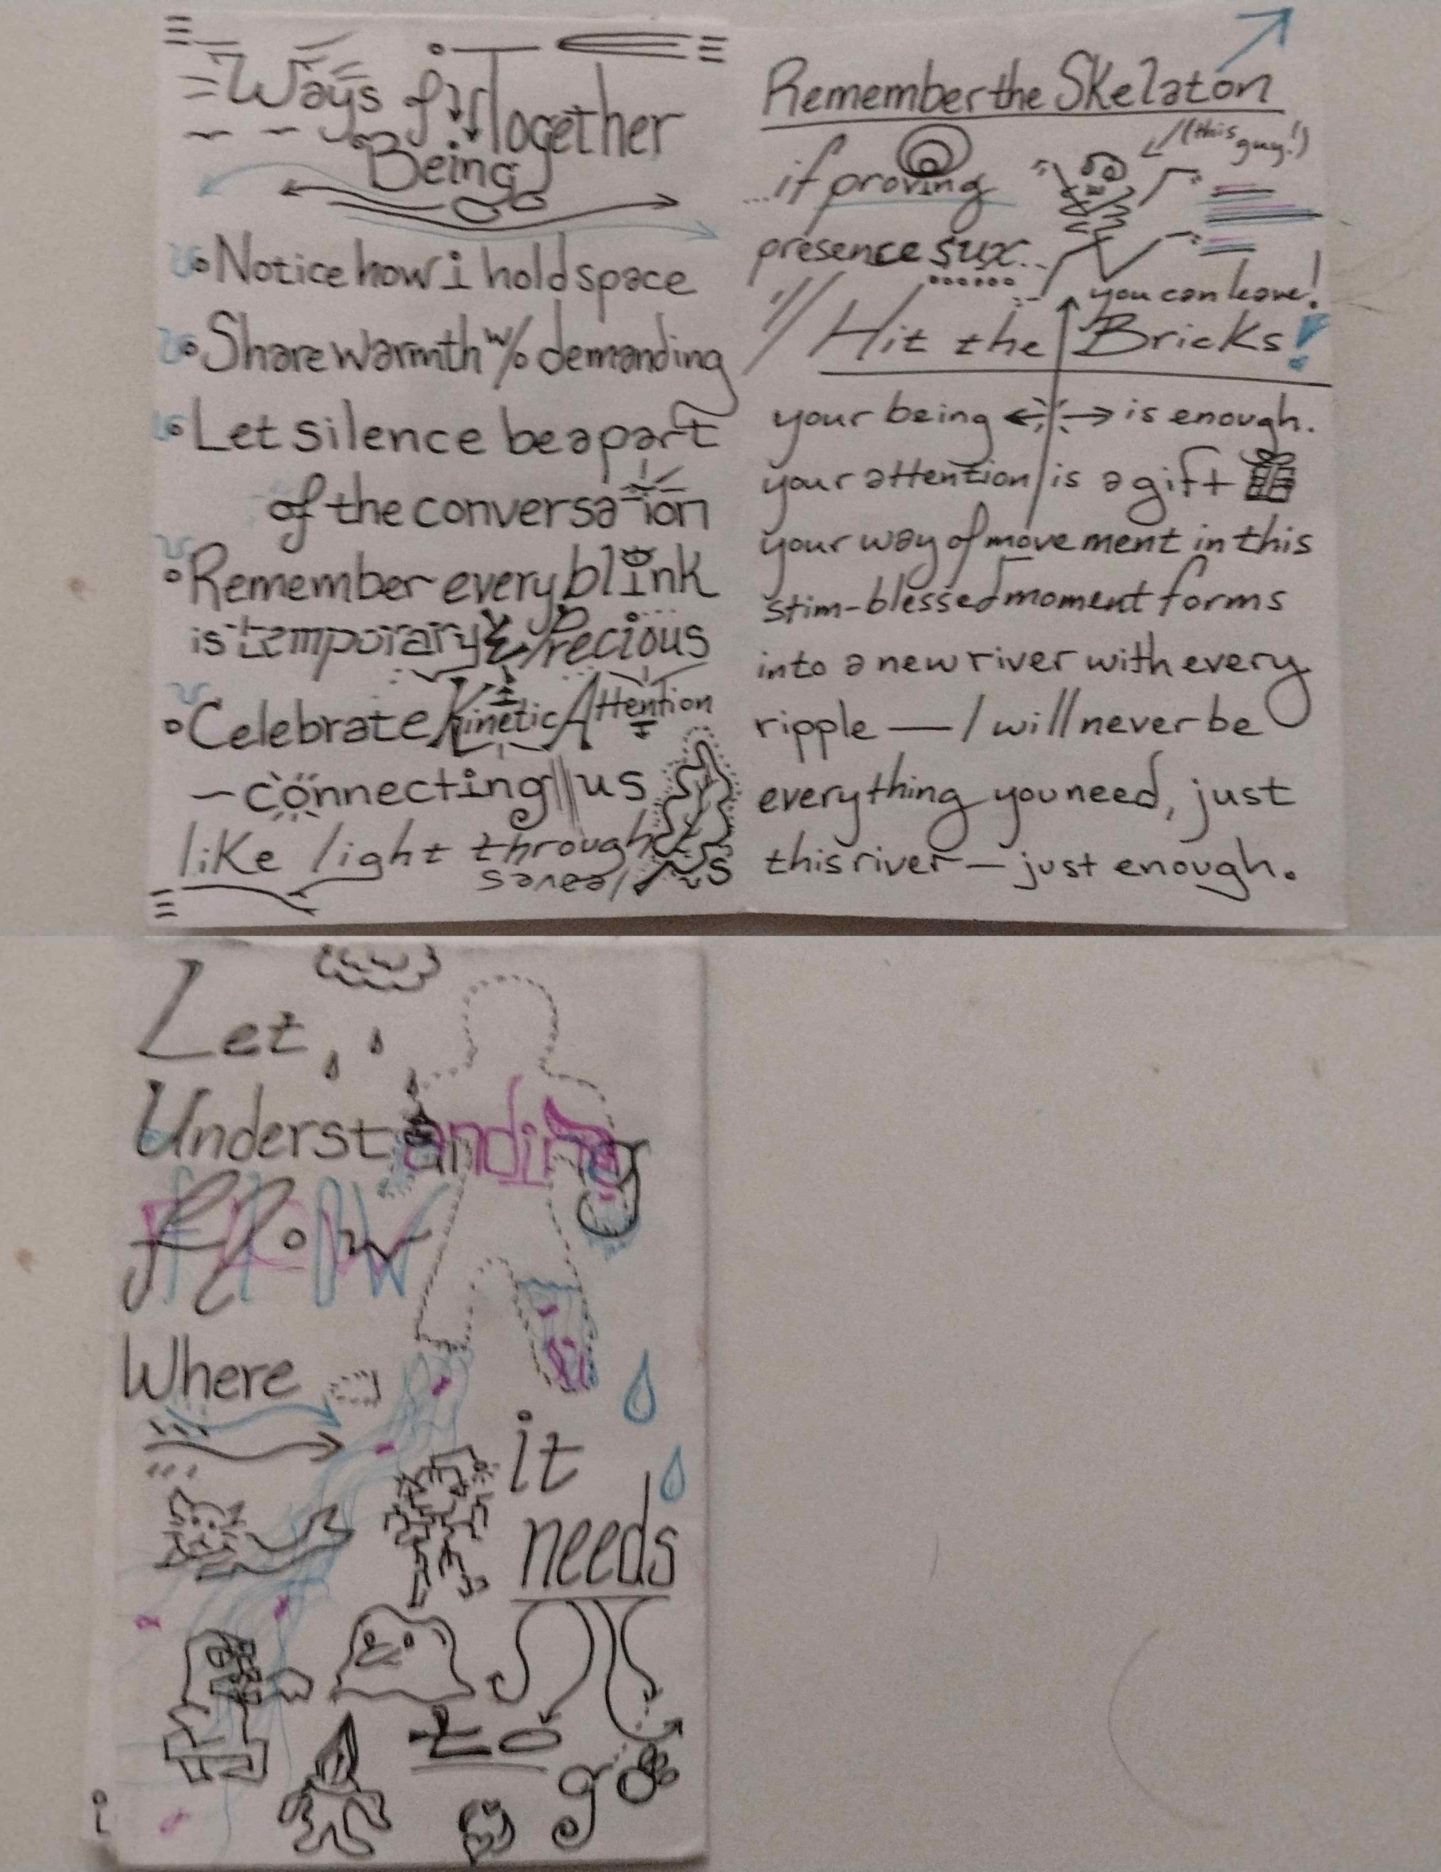 Ways of Together
Being
Notice how i hold space
Share warmth w/o demanding
Let silence be a part
of the conversation
Remember every blink
is temporary & Precious
Celebrate Kinetic Attention
— connecting us
like light through
leaves
Remember the Skelaton
(this guy!)
...if proving
presence sux...
you can leave!
Hit the Bricks!
your being is enough.
your attention is a gift
your way of movement in this
stim-blessed moment forms
into a new river with every
ripple — I will never be
everything you need, just
this river — just enough.
Let
Understanding
flow
Where
it
needs
to
go
i